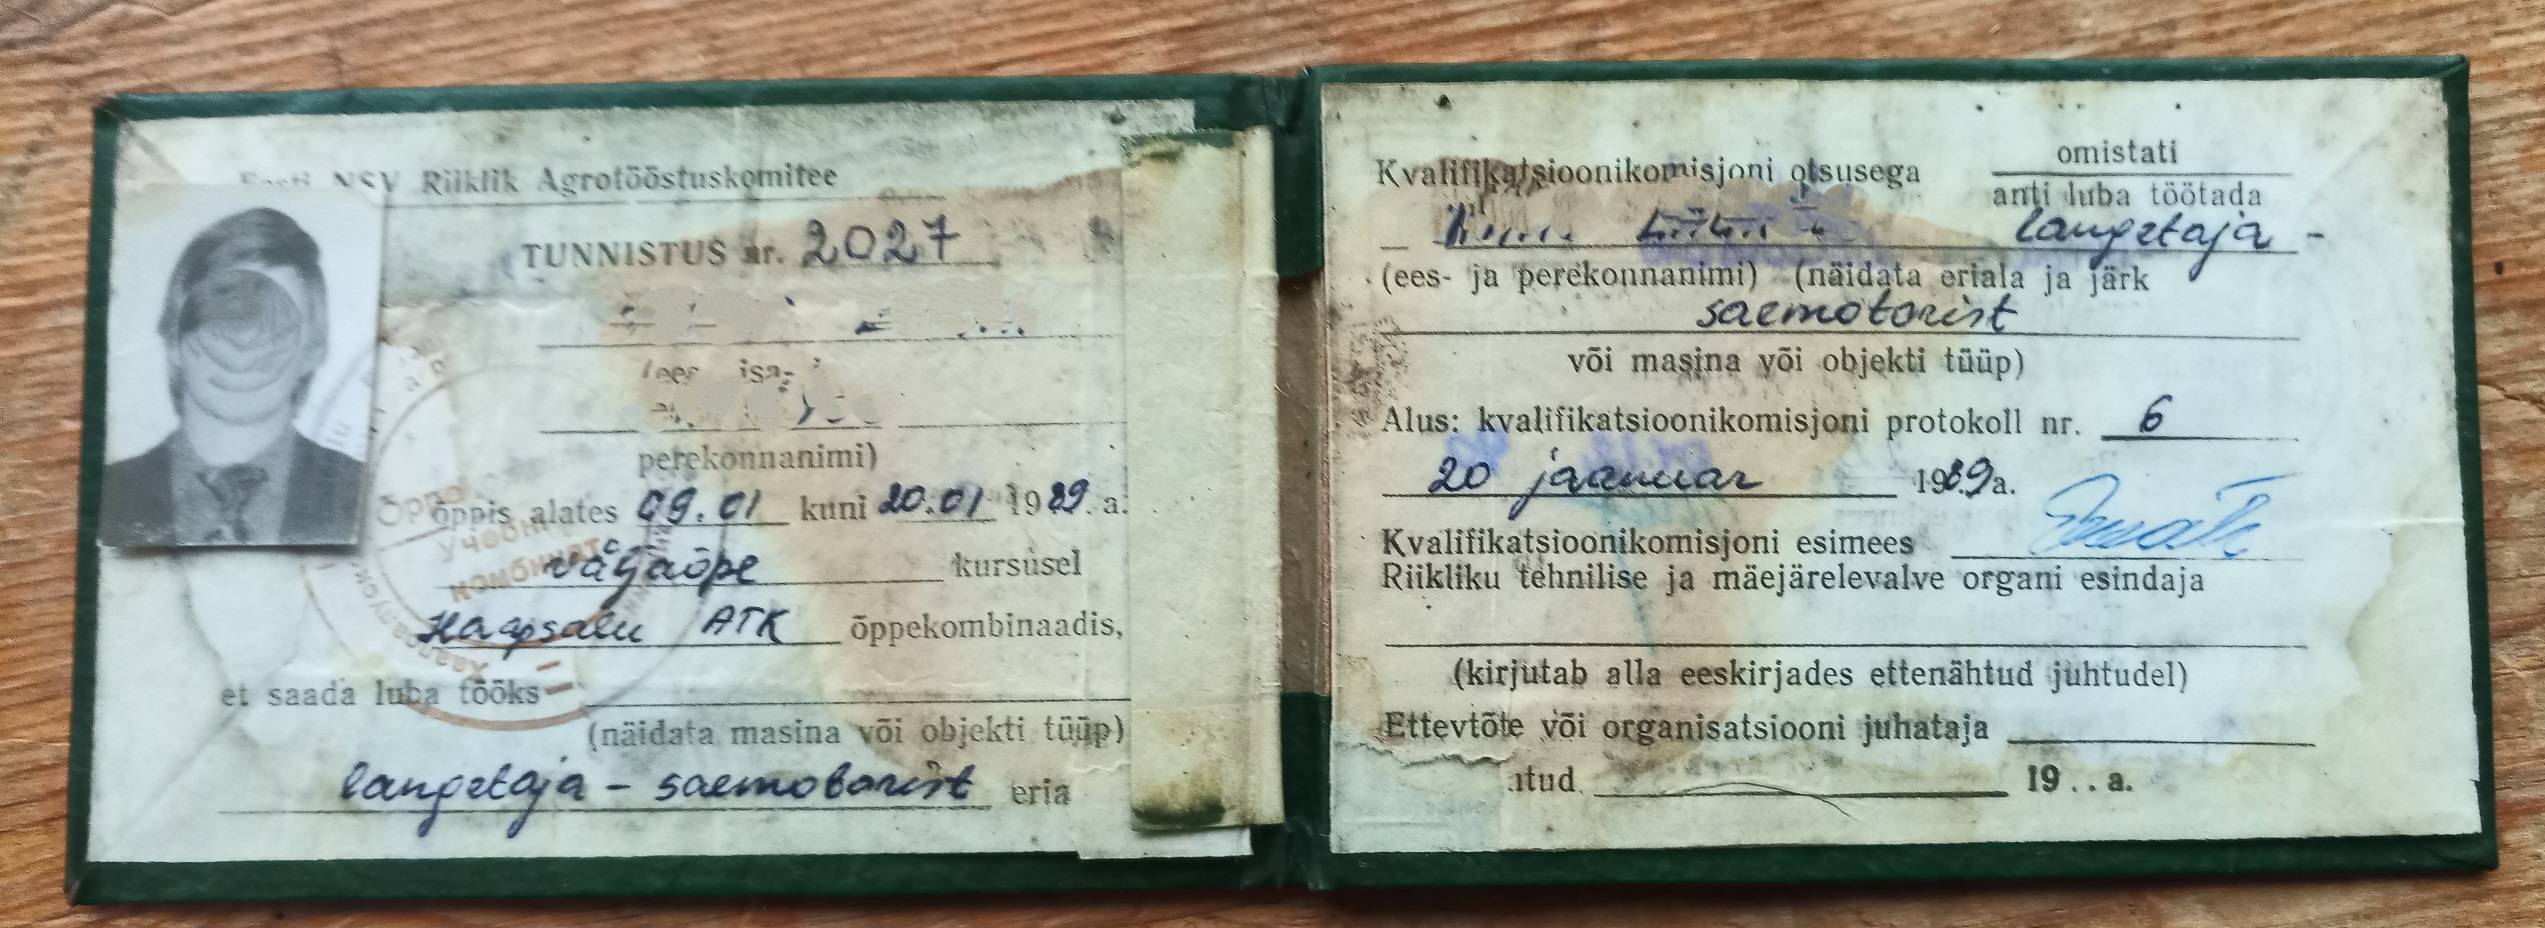 NSV Riiklik Agrotööstuskomitee
TUNNISTUS nr. 2027
isa-
perekonnanimi)
õppis alates 09.01 kuni 20.01 1989. a.
väljaõpe kursusel
Haapsalu ATK õppekombinaadis,
et saada luba tööks
(näidata masina või objekti tüüp)
langetaja - saemotorist eria
комбинат
Kvalifikatsioonikomisjoni otsusega omistati
anti luba töötada
langetaja -
(ees- ja perekonnanimi) (näidata eriala ja järk
saemotorist
või masina või objekti tüüp)
Alus: kvalifikatsioonikomisjoni protokoll nr. 6
20 jaanuar 1989a.
Kvalifikatsioonikomisjoni esimees
Riikliku tehnilise ja mäejärelevalve organi esindaja
(kirjutab alla eeskirjades ettenähtud juhtudel)
Ettevtõte või organisatsiooni juhataja
19 . . a.